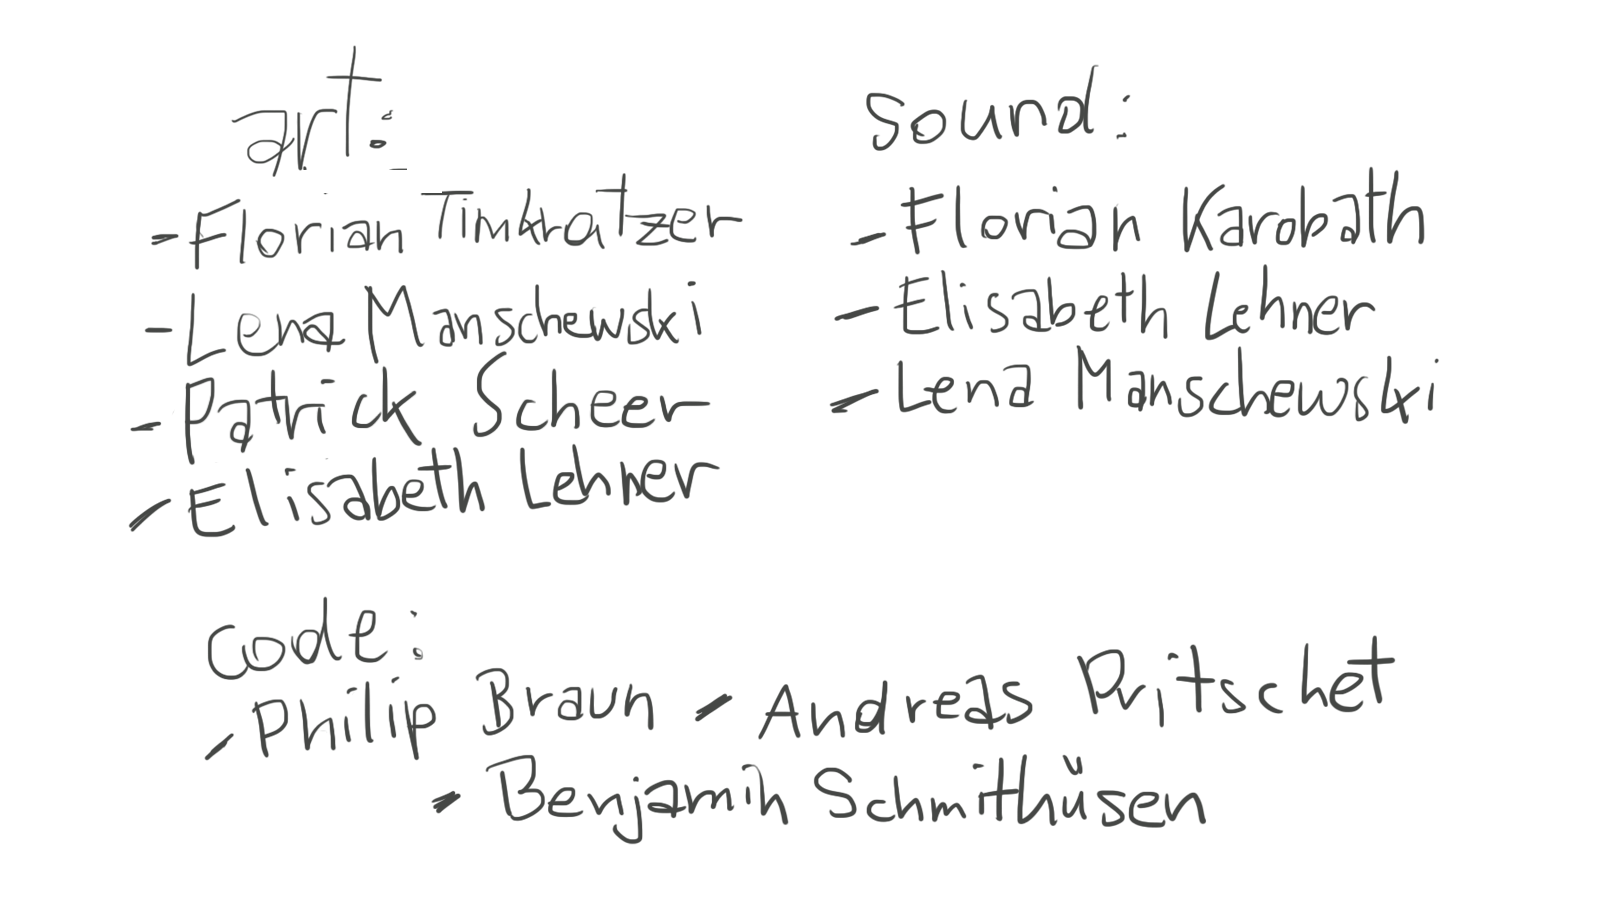 art:
- Florian Timkratzer
- Lena Manschewski
- Patrick Scheer
- Elisabeth Lehner
sound:
- Florian Karobath
- Elisabeth Lehner
- Lena Manschewski
code:
- Philip Braun - Andreas Pritschet
- Benjamin Schmithüsen